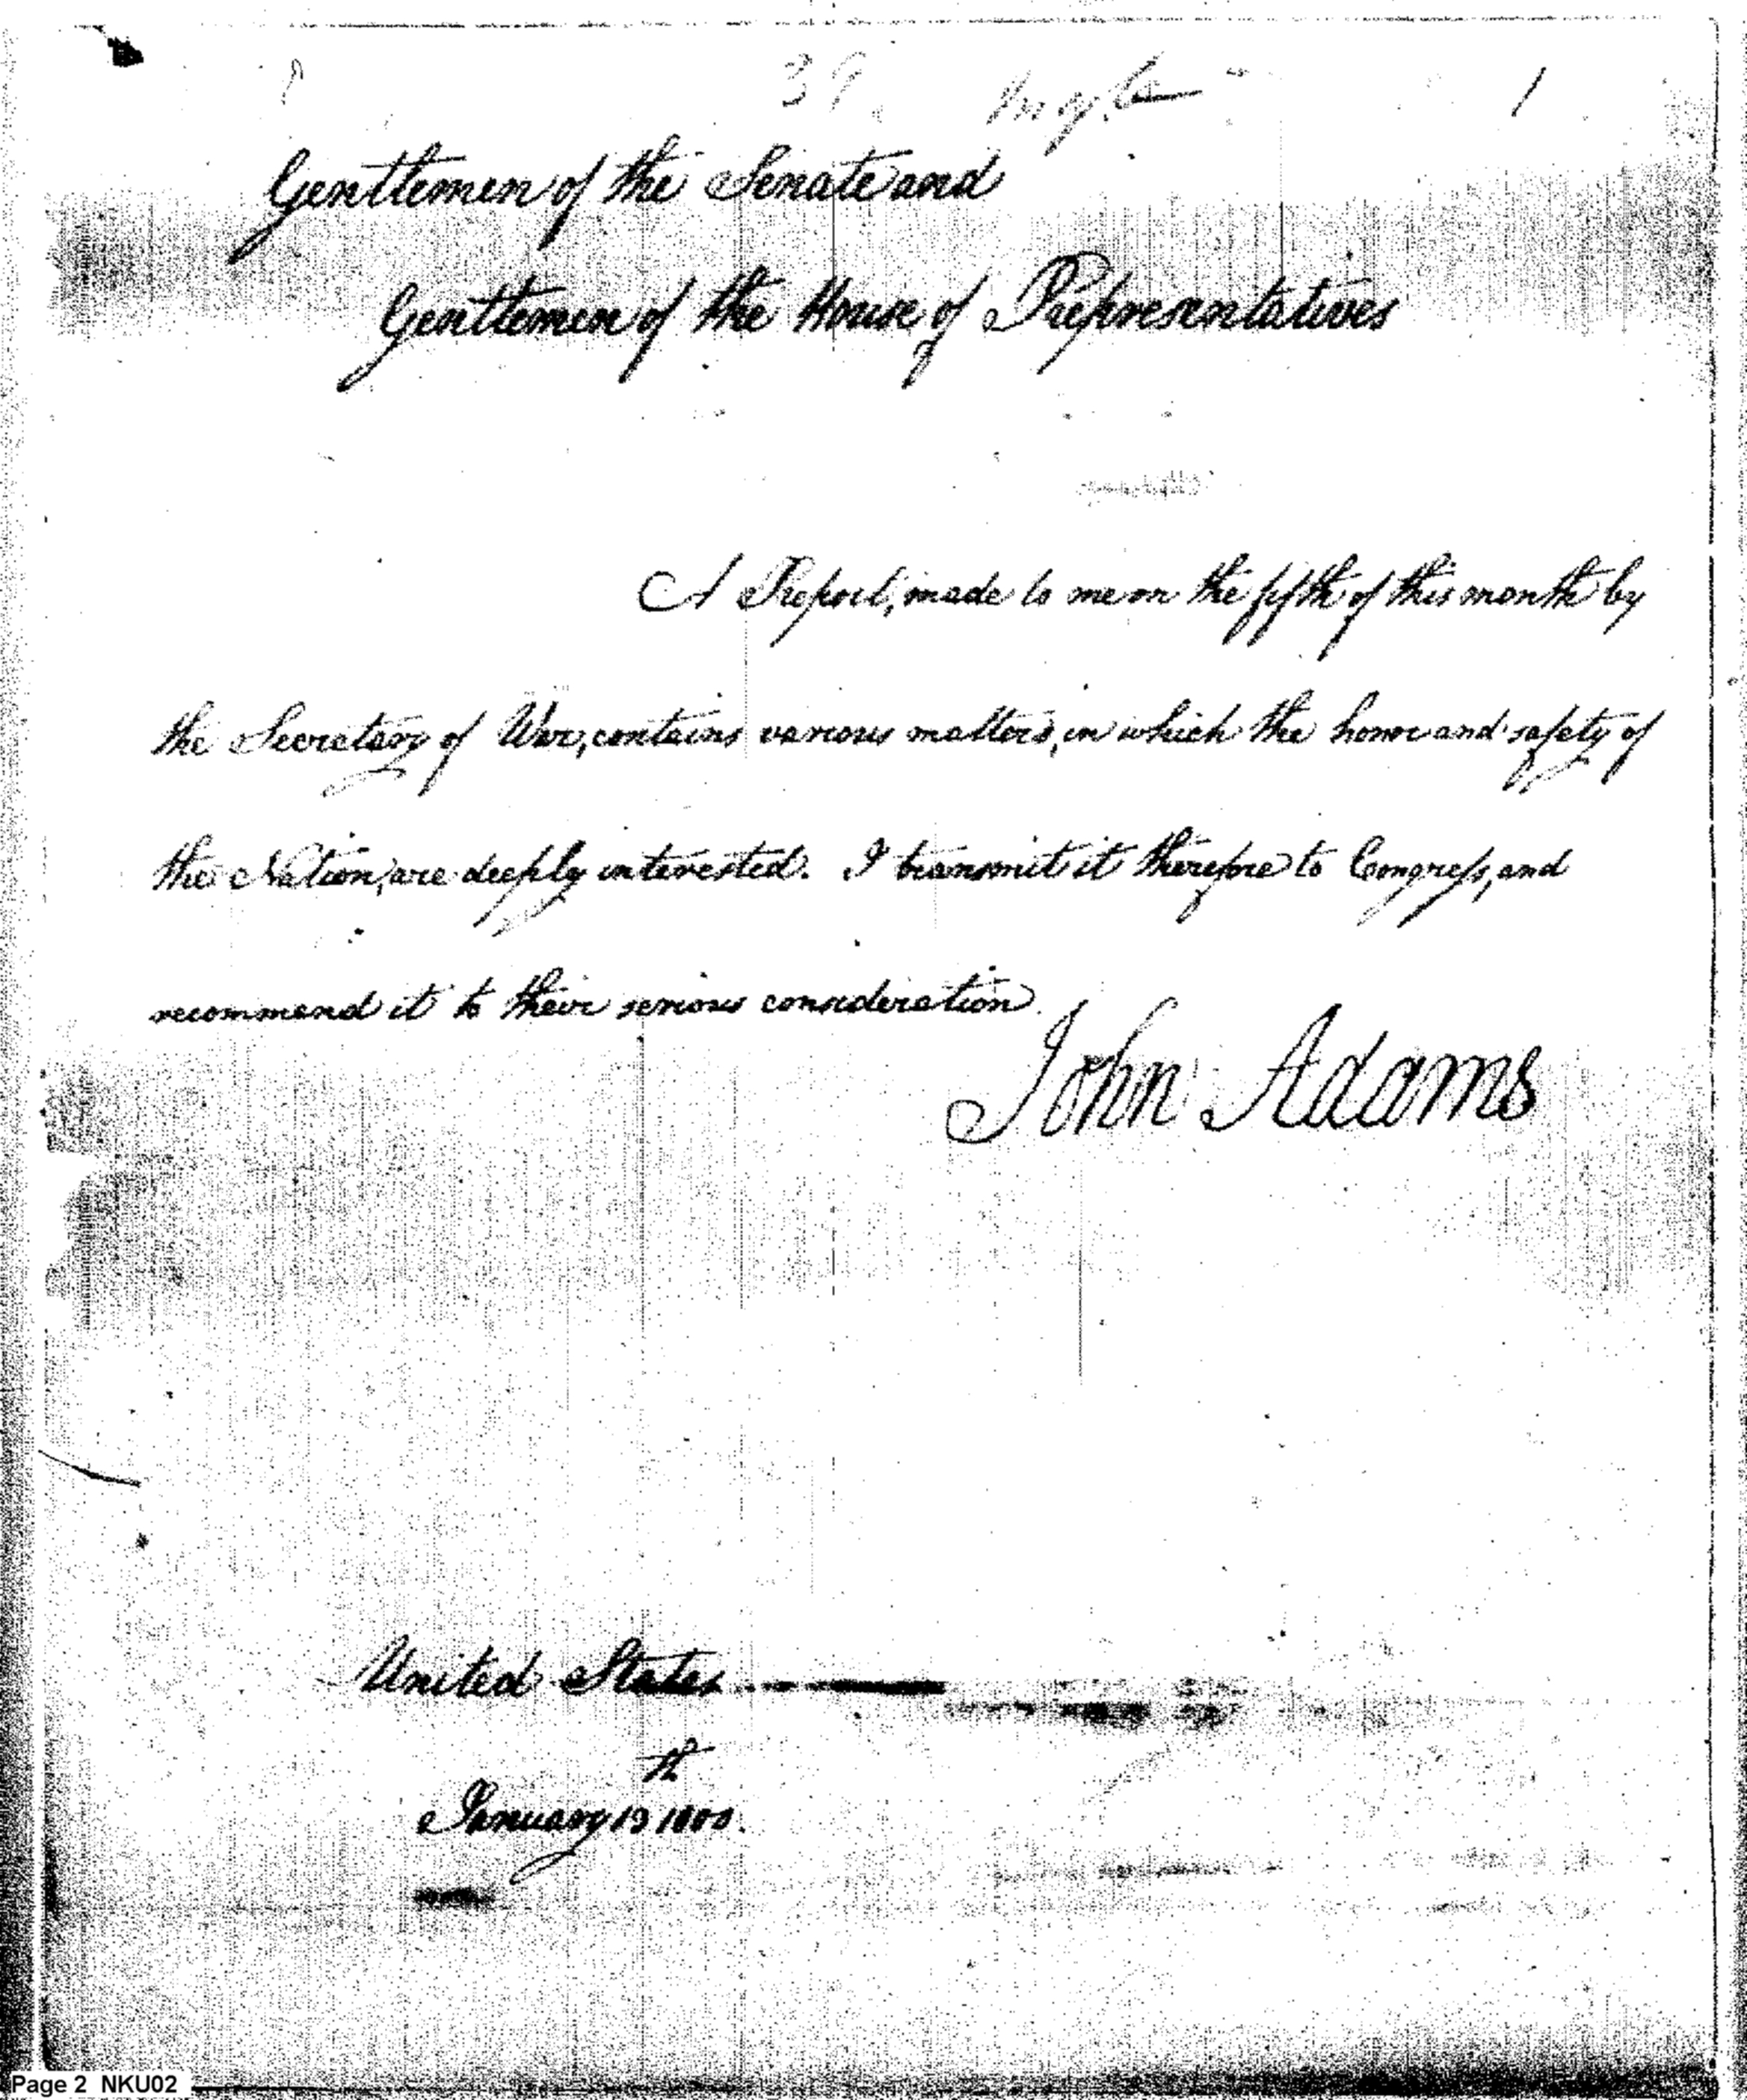 39
1
Gentlemen of the Senate and
Gentlemen of the House of Representatives
A Report, made to me on the fifth of this month by
the Secretary of War, contains various matters, in which the honor and safety of
the Nation, are deeply interested. I transmit it therefore to Congress, and
recommend it to their serious consideration.
John Adams
United States
th
January 13 1800.
Page 2 NKU02